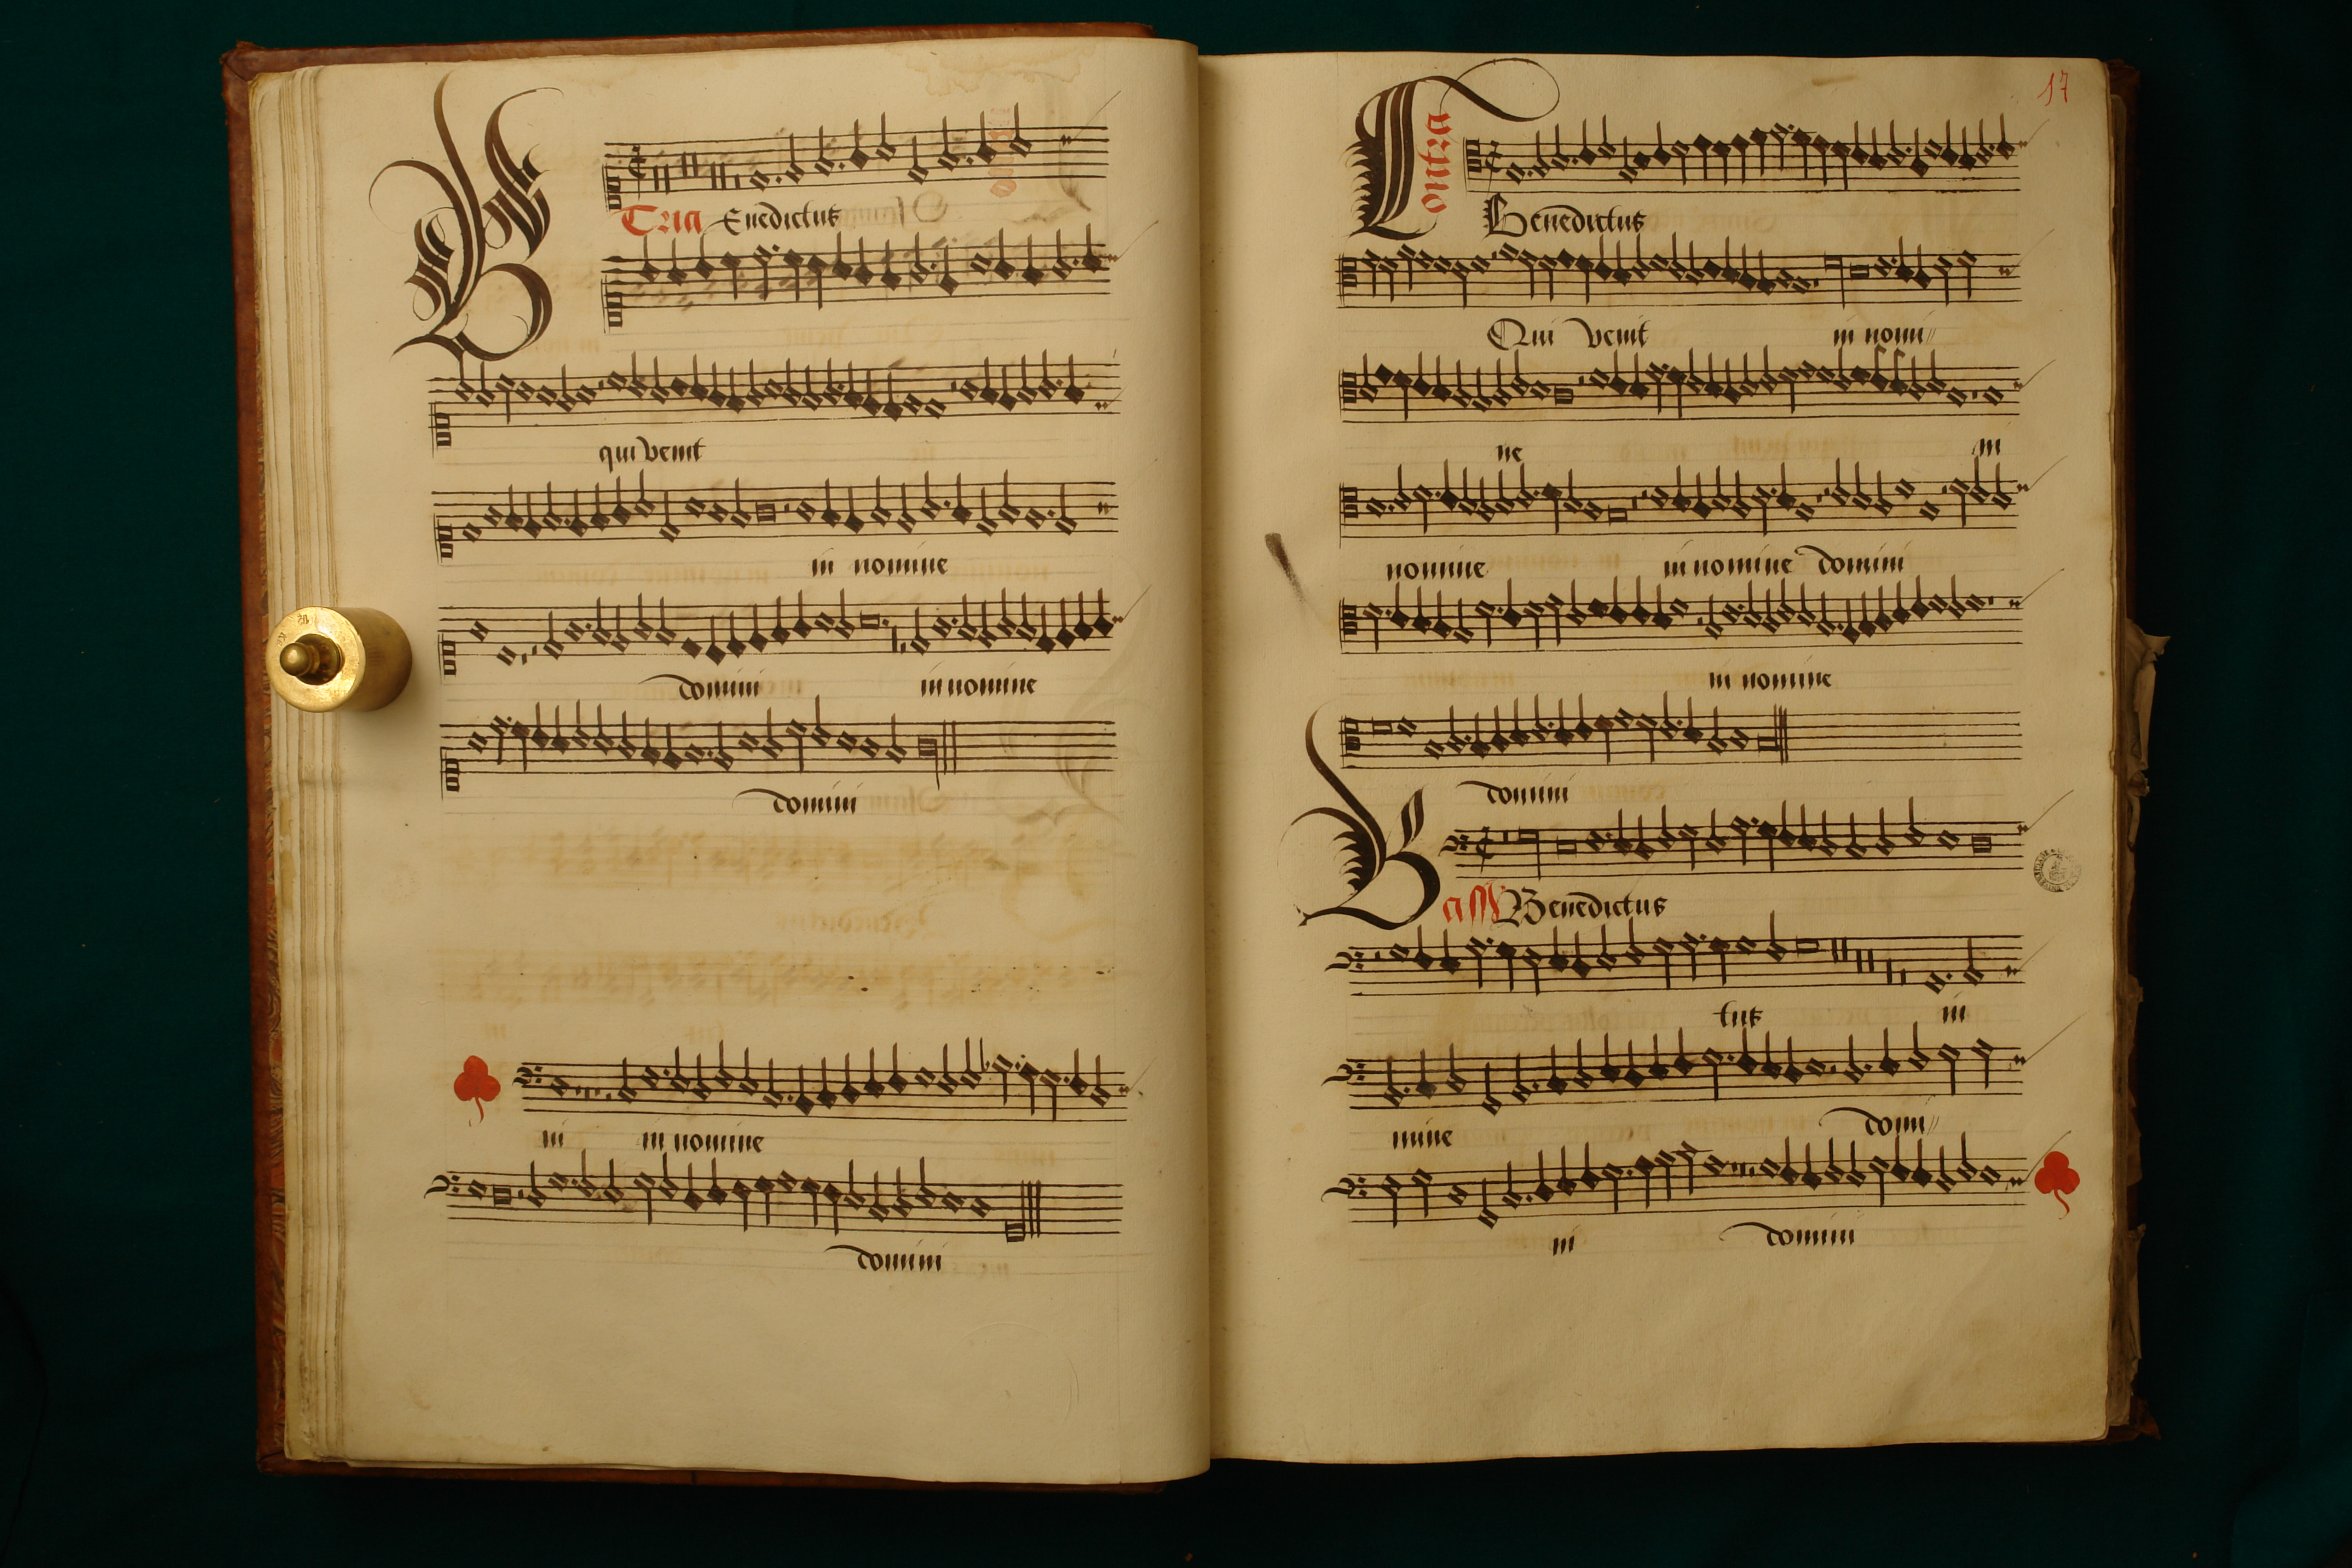 Tria Benedictus
qui venit
in nomine
domini in nomine
domini
ni in nomine
domini
17
Contra
Benedictus
Qui venit in nomi//
ne in
nomine in nomine domini
in nomine
domini
Bass Benedictus
tus in
nomine domi//
ni domini